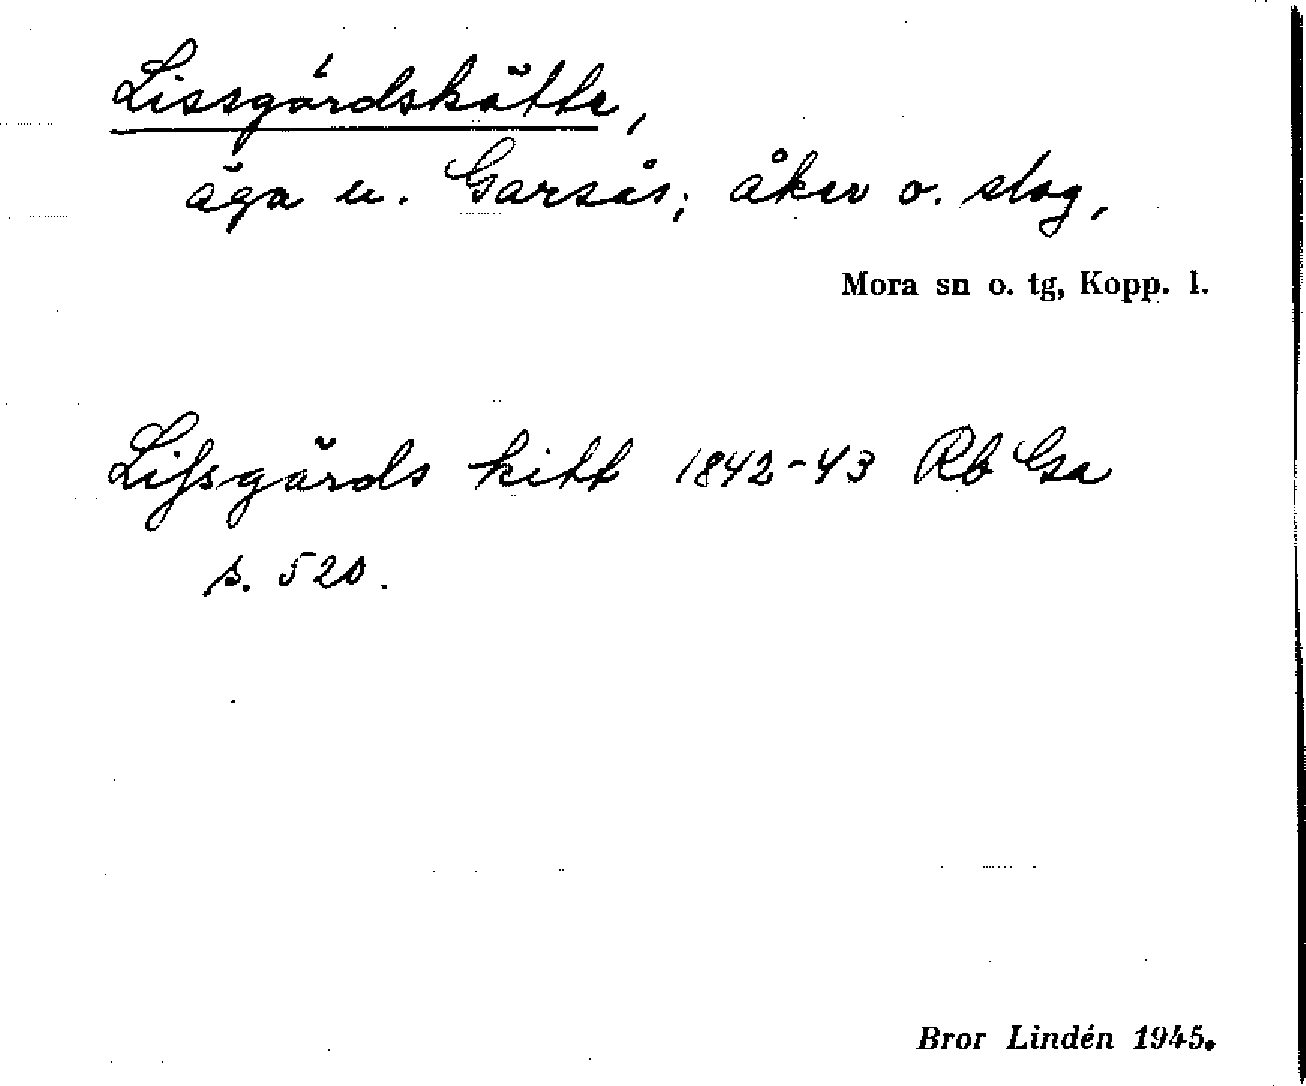 Lissgårdskätte,
äga u. Garsås; åker o. slog,
Mora sn o. tg, Kopp. l.
Lissgärds kitt 1842-43 Rb Ga
s. 520.
Bror Lindén 1945.